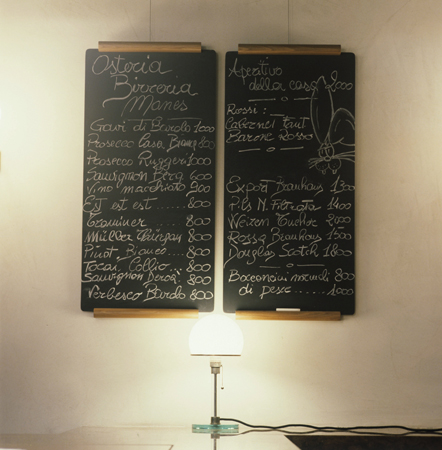 Osteria
Birreria
Manes
Gavi di Barolo 1000
Prosecco Casa Bianca 800
Prosecco Ruggeri 1000
Sauvignon Berg 600
Vino macchiato 700
Est est est ..... 800
Traminer ...... 800
Müller Thurgau 800
Pinot Bianco ..... 800
Tocai Collio .... 800
Sauvignon 800
Verbesco Barolo 800
Aperitivo
della casa 2000
Rossi :
Cabernet
Barone Rosso
Export Brauhaus 1300
Pils N. Filtrata 1400
Weizen Tucher 2000
Rossa Brauhaus 1500
Douglas Scotch 1800
Bocconcini 800
di pesce ...... 1000